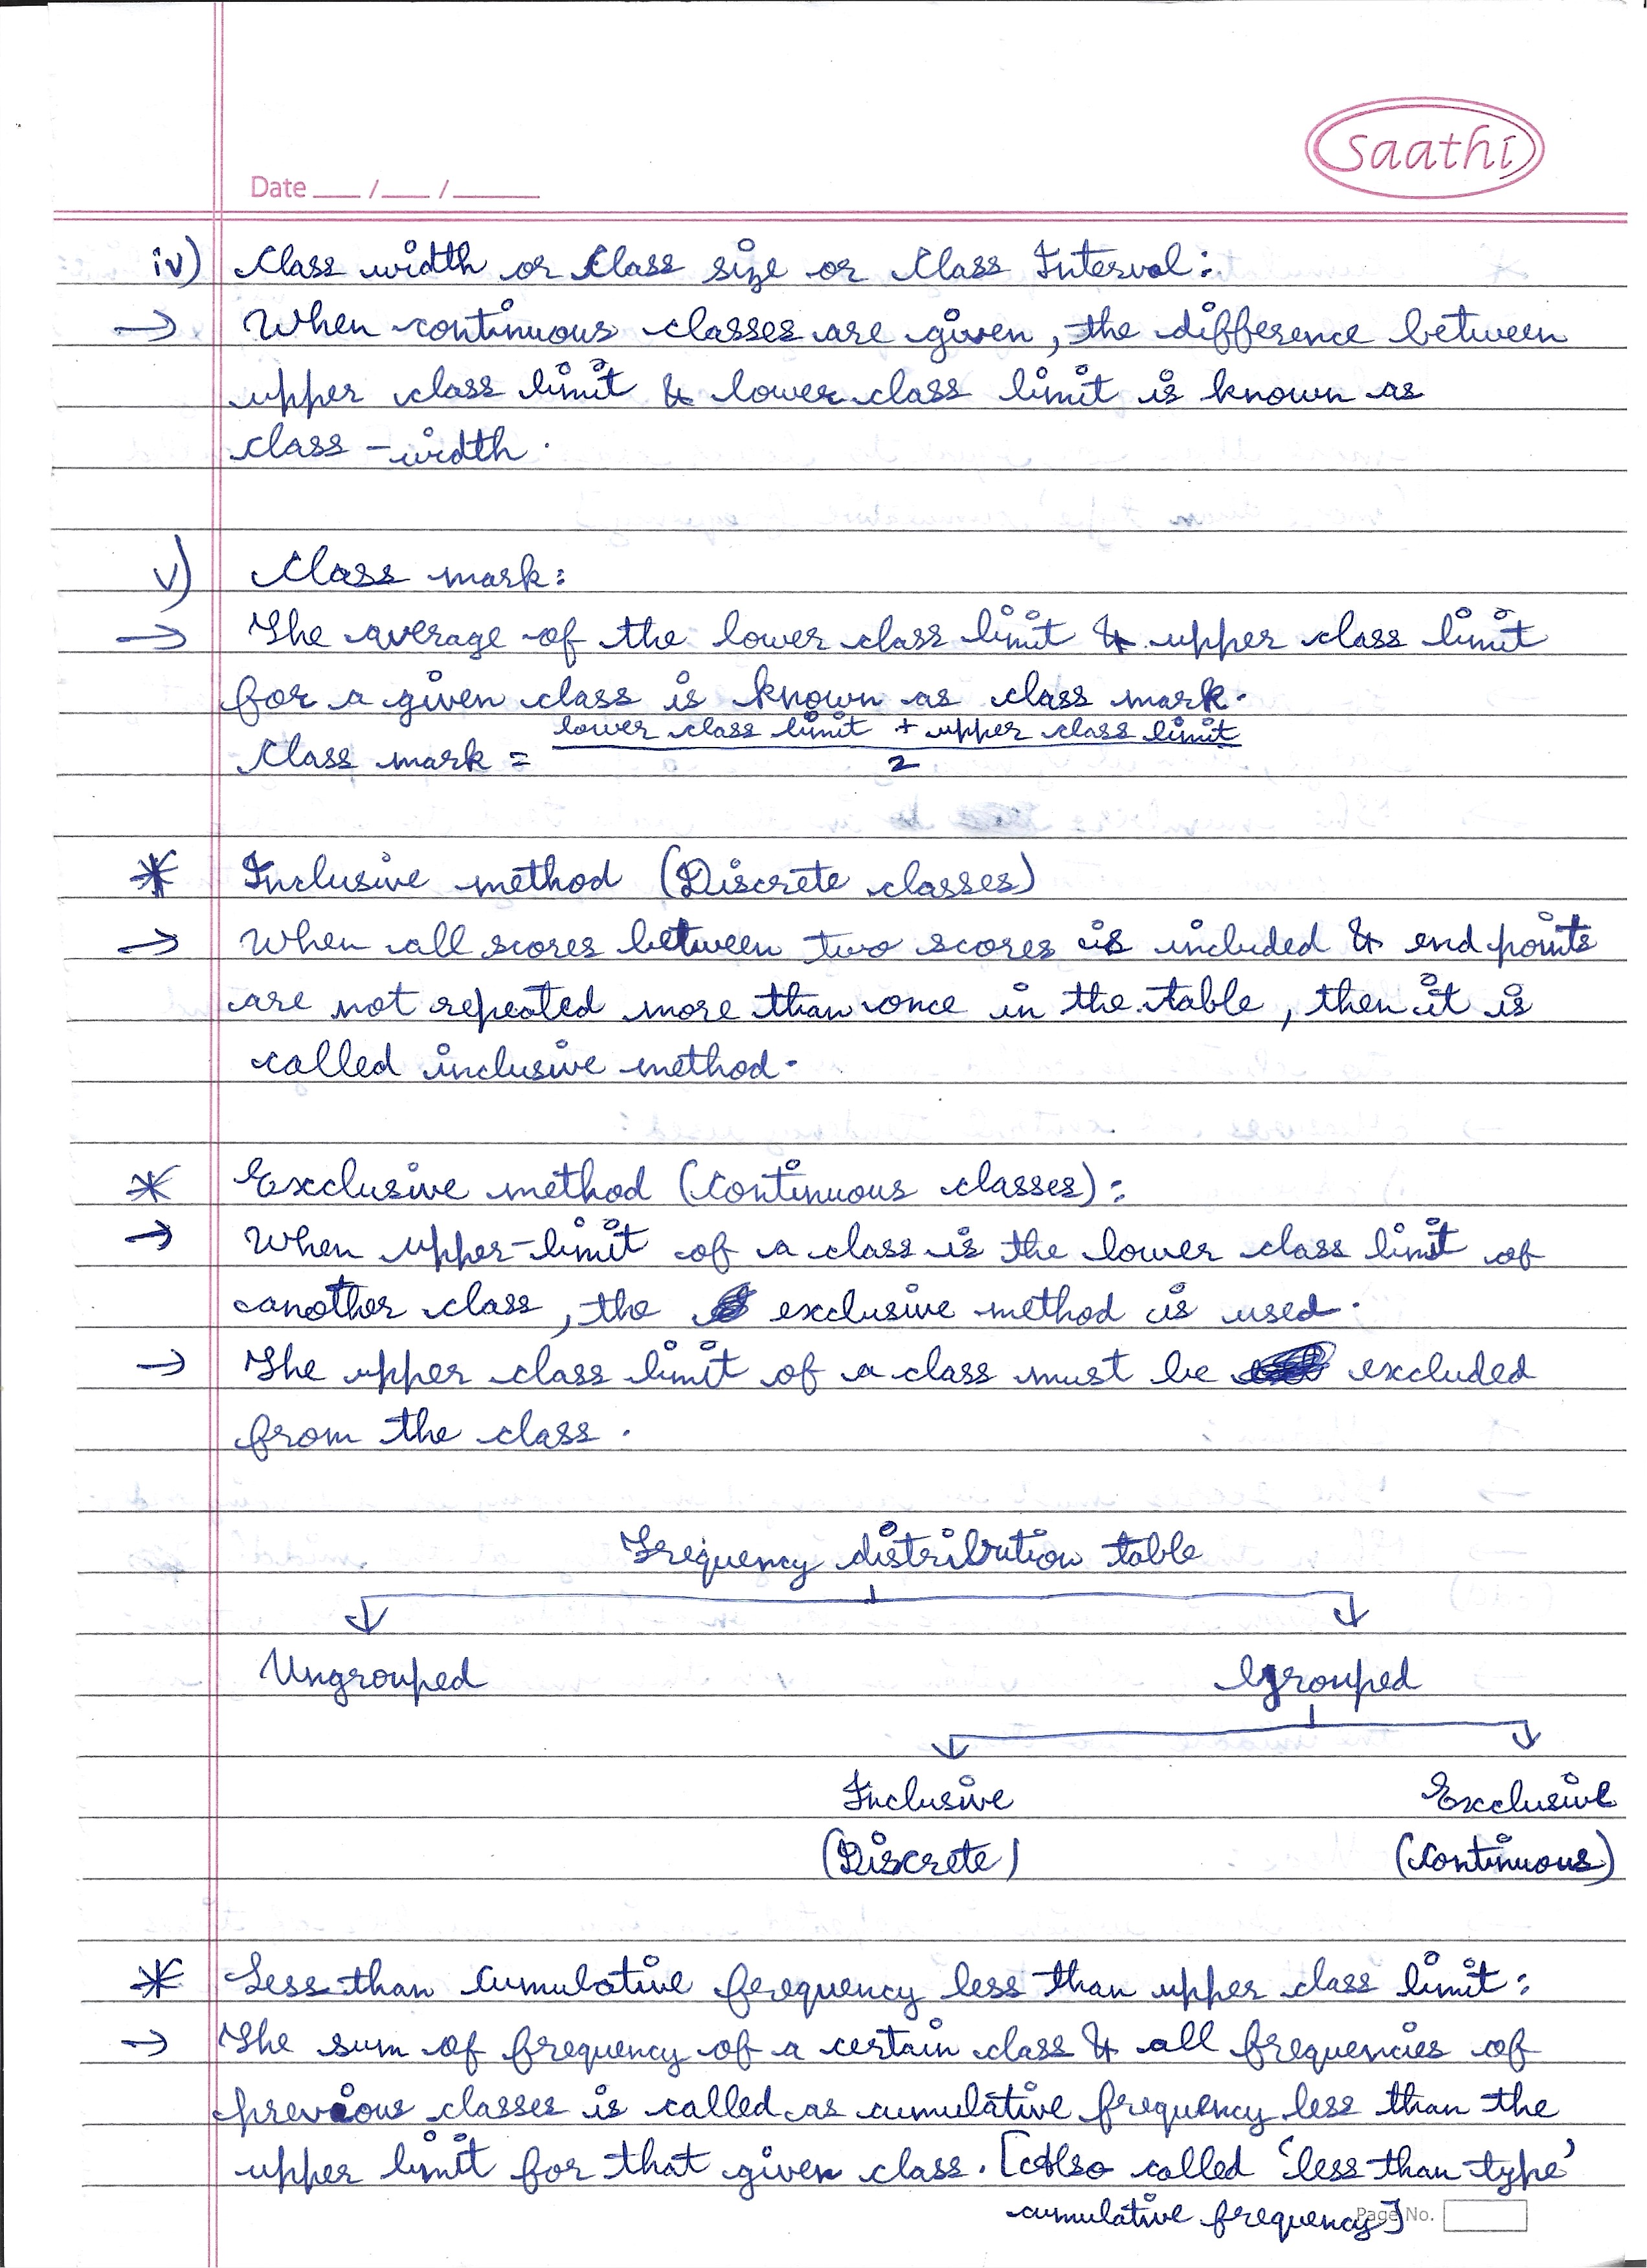 Saathi
Date ___ / ___ / _____
iv) Class width or Class size or Class Interval:
→ When continuous classes are given, the difference between
upper class limit & lower class limit is known as
class - width.
v) Class mark:
→ The average of the lower class limit & upper class limit
for a given class is known as class mark.
lower class limit + upper class limit
Class mark =
2
* Inclusive method (Discrete classes)
→ When all scores between two scores is included & end points
are not repeated more than once in the table, then it is
called inclusive method.
* Exclusive method (Continuous classes):
→ When upper-limit of a class is the lower class limit of
another class, the exclusive method is used.
→ The upper class limit of a class must be excluded
from the class.
Frequency distribution table
Ungrouped Grouped
Inclusive Exclusive
(Discrete) (Continuous)
* Less than Cumulative frequency less than upper class limit:
→ The sum of frequency of a certain class & all frequencies of
previous classes is called as cumulative frequency less than the
upper limit for that given class. [Also called 'less than type'
cumulative frequency]
Page No.